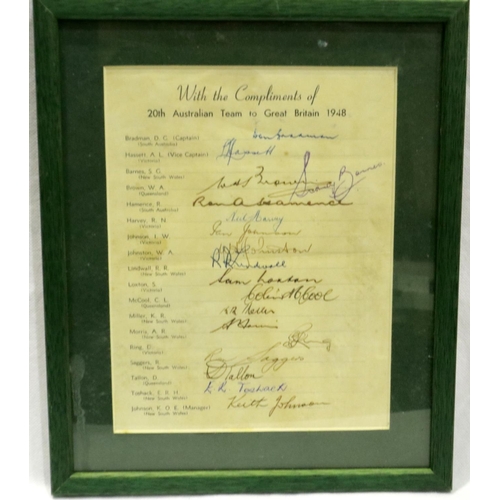 With the Compliments of
20th Australian Team to Great Britain 1948
Bradman, D. G. (Captain)
(South Australia)
Don Bradman
Hassett, A. L. (Vice Captain)
(Victoria)
Hassett
Barnes, S. G.
(New South Wales)
Sidney Barnes
Brown, W. A.
(Queensland)
Brown
Hamence, R.
(South Australia)
Ron A Hamence
Harvey, R. N.
(Victoria)
Neil Harvey
Johnson, I. W.
(Victoria)
Ian Johnson
Johnston, W. A.
(Victoria)
Johnston
Lindwall, R. R.
(New South Wales)
R R Lindwall
Loxton, S.
(Victoria)
Sam Loxton
McCool, C. L.
(Queensland)
Colin McCool
Miller, K. R.
(New South Wales)
K R Miller
Morris, A. R.
(New South Wales)
A Morris
Ring, D.
(Victoria)
D Ring
Saggers, R.
(New South Wales)
Saggers
Tallon, D.
(Queensland)
D Tallon
Toshack, E. R. H.
(New South Wales)
Toshack
Johnson, K. O. E. (Manager)
(New South Wales)
Keith Johnson